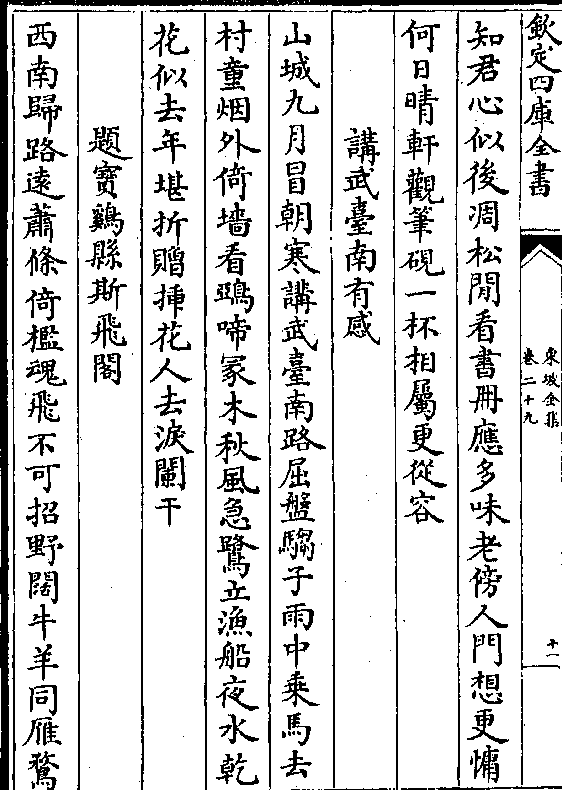 欽定四庫全書
東坡全集
卷二十九
十一
知君心似後凋松閒看書冊應多味老傍人門想更慵
何日晴軒觀筆硯一杯相屬更從容
講武臺南有感
山城九月冒朝寒講武臺南路屈盤騶子雨中乗馬去
村童烟外倚墻看鵶啼冡木秋風急鷺立漁船夜水乾
花似去年堪折贈挿花人去淚闌干
題寶雞縣斯飛閣
西南歸路遠蕭條倚檻魂飛不可招野闊牛羊同雁鶩